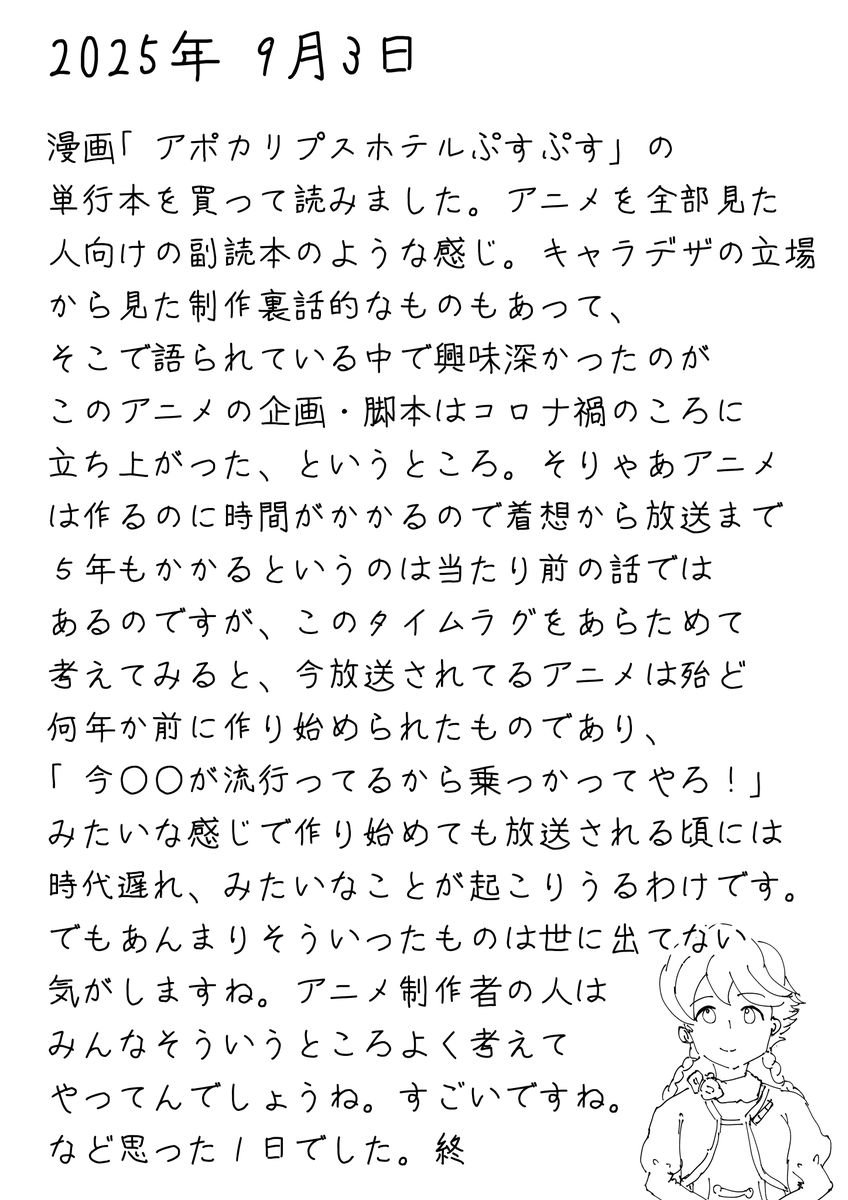 2025年 9月3日
漫画「アポカリプスホテルぷすぷす」の
単行本を買って読みました。アニメを全部見た
人向けの副読本のような感じ。キャラデザの立場
から見た制作裏話的なものもあって、
そこで語られている中で興味深かったのが
このアニメの企画・脚本はコロナ禍のころに
立ち上がった、というところ。そりゃあアニメ
は作るのに時間がかかるので着想から放送まで
5年もかかるというのは当たり前の話では
あるのですが、このタイムラグをあらためて
考えてみると、今放送されてるアニメは殆ど
何年か前に作り始められたものであり、
「今〇〇が流行ってるから乗っかってやろ！」
みたいな感じで作り始めても放送される頃には
時代遅れ、みたいなことが起こりうるわけです。
でもあんまりそういったものは世に出てない
気がしますね。アニメ制作者の人は
みんなそういうところよく考えて
やってんでしょうね。すごいですね。
など思った1日でした。終